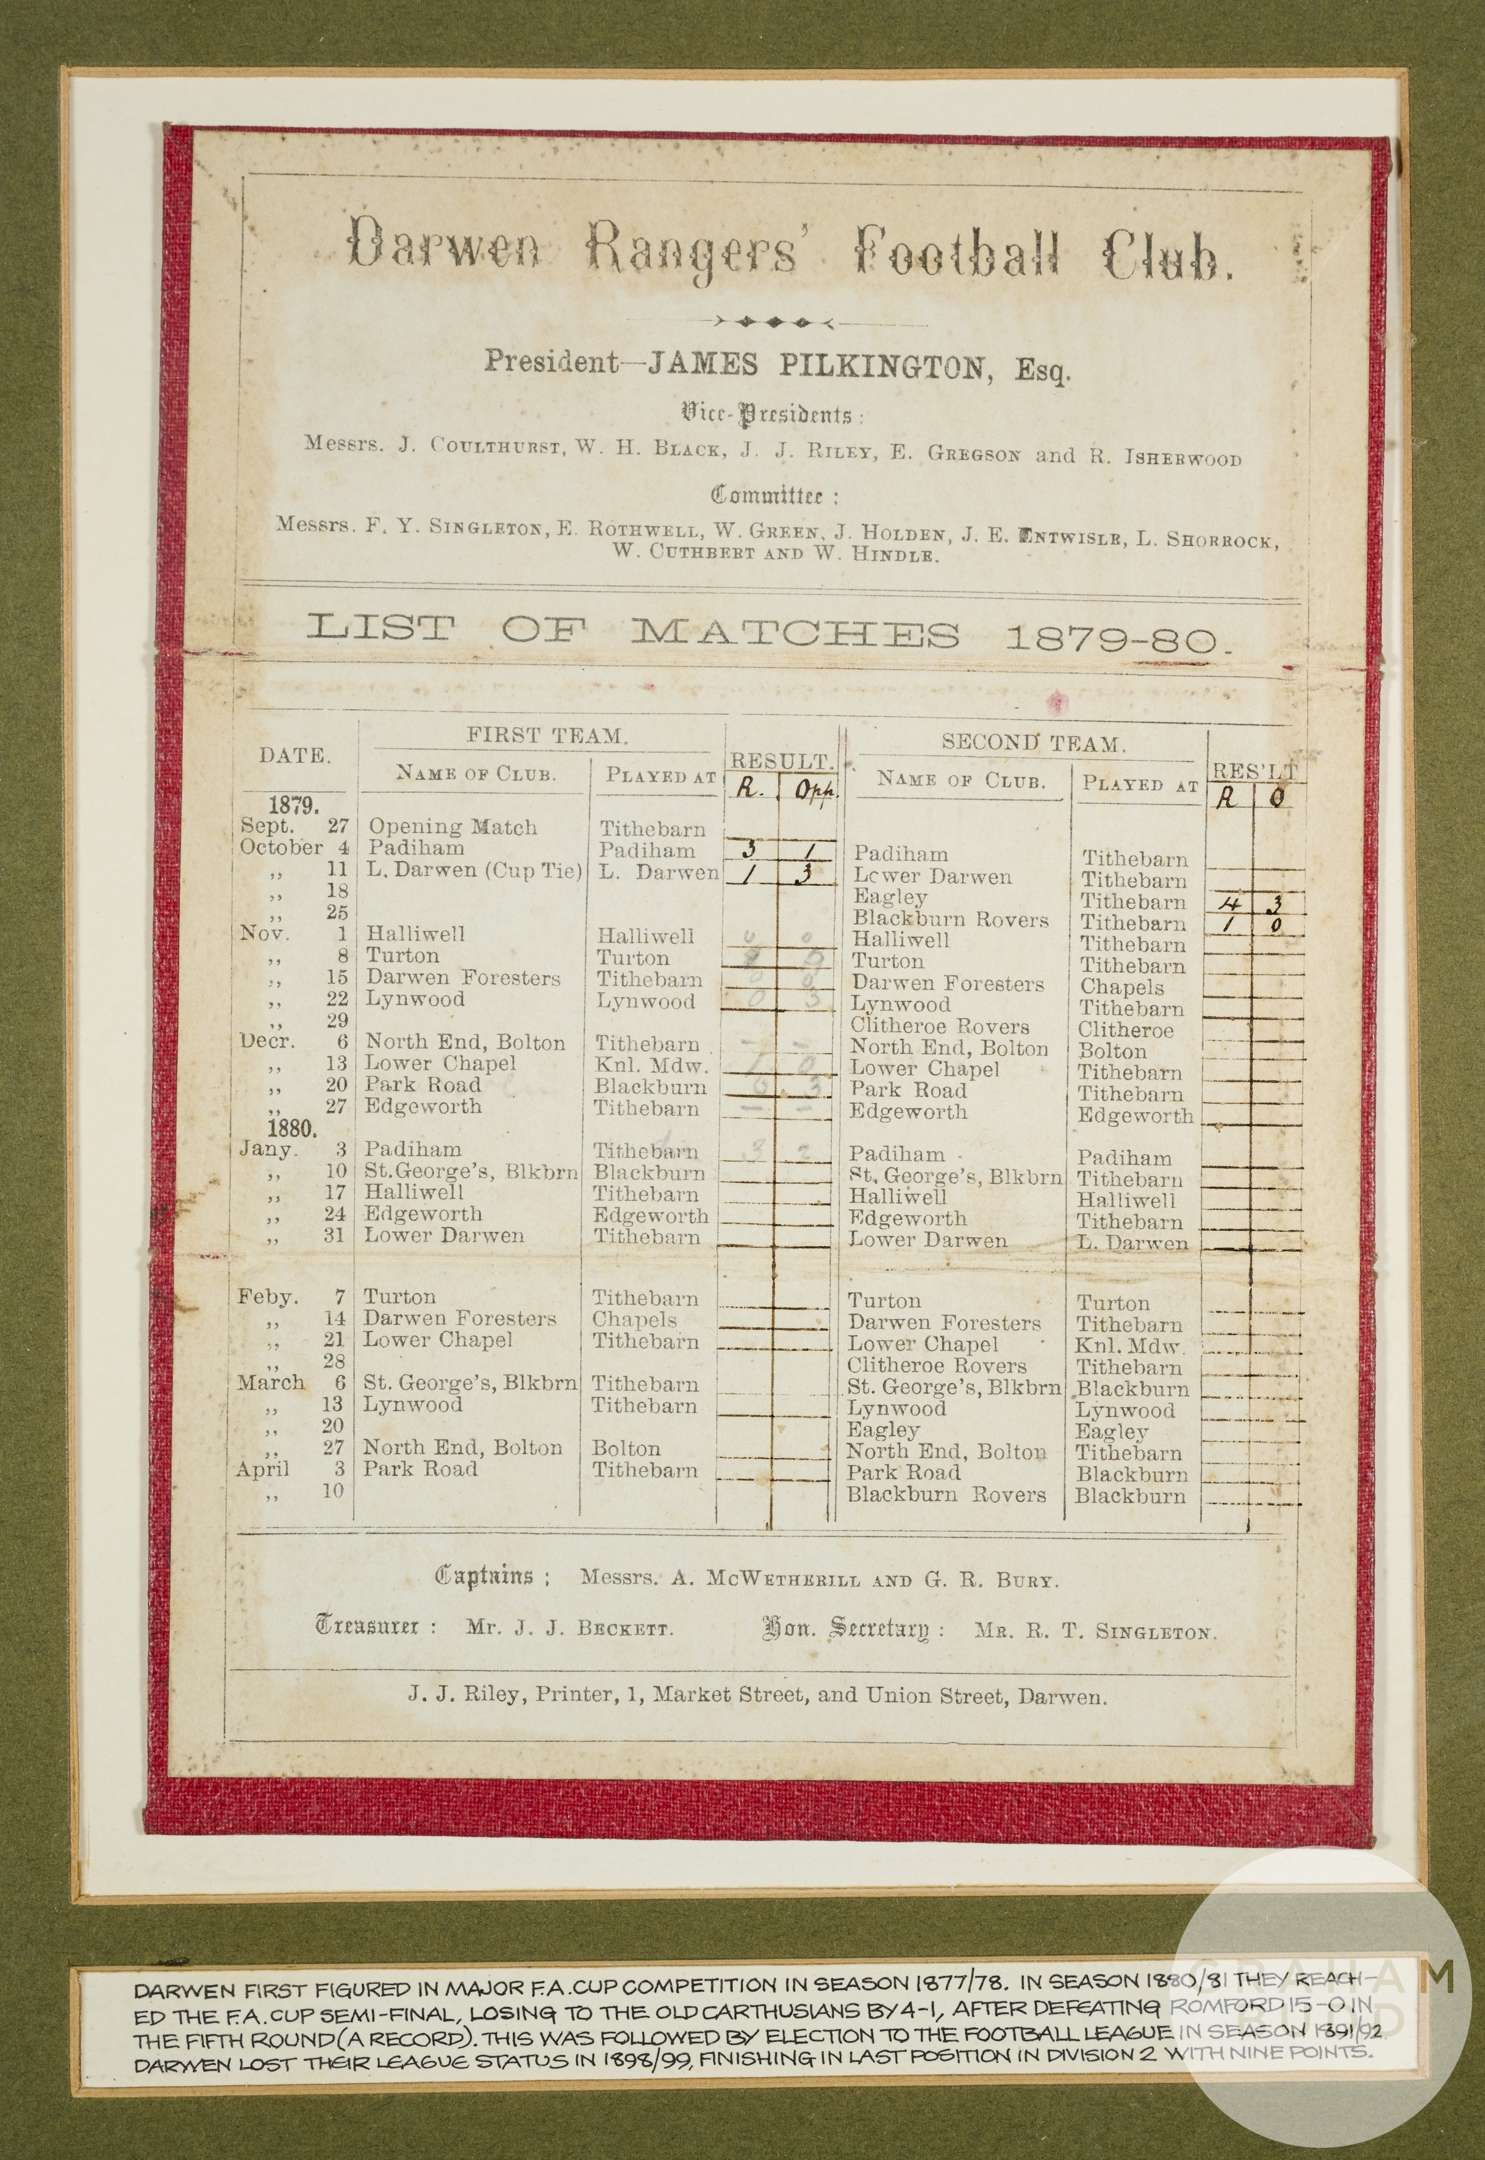 Darwen Rangers' Football Club.
President—JAMES PILKINGTON, Esq.
Vice-Presidents:
Messrs. J. COULTHURST, W. H. BLACK, J. J. RILEY, E. GREGSON and R. ISHERWOOD
Committee:
Messrs. F. Y. SINGLETON, E. ROTHWELL, W. GREEN, J. HOLDEN, J. E. ENTWISLE, L. SHORROCK,
W. CUTHBERT AND W. HINDLE.
LIST OF MATCHES 1879-80.
DATE. FIRST TEAM. RESULT. SECOND TEAM. RES'LT
NAME OF CLUB. PLAYED AT R. Opp. NAME OF CLUB. PLAYED AT R O
1879.
Sept. 27 Opening Match Tithebarn
October 4 Padiham Padiham 3 1 Padiham Tithebarn
,, 11 L. Darwen (Cup Tie) L. Darwen 1 3 Lower Darwen Tithebarn
,, 18 Eagley Tithebarn 4 3
,, 25 Blackburn Rovers Tithebarn 1 0
Nov. 1 Halliwell Halliwell 0 0 Halliwell Tithebarn
,, 8 Turton Turton Turton Tithebarn
,, 15 Darwen Foresters Tithebarn 0 0 Darwen Foresters Chapels
,, 22 Lynwood Lynwood 0 3 Lynwood Tithebarn
,, 29 Clitheroe Rovers Clitheroe
Decr. 6 North End, Bolton Tithebarn — — North End, Bolton Bolton
,, 13 Lower Chapel Knl. Mdw. 1 0 Lower Chapel Tithebarn
,, 20 Park Road Blackburn 0 3 Park Road Tithebarn
,, 27 Edgeworth Tithebarn — — Edgeworth Edgeworth
1880.
Jany. 3 Padiham Tithebarn 3 2 Padiham Padiham
,, 10 St.George's, Blkbrn Blackburn St. George's, Blkbrn Tithebarn
,, 17 Halliwell Tithebarn Halliwell Halliwell
,, 24 Edgeworth Edgeworth Edgeworth Tithebarn
,, 31 Lower Darwen Tithebarn Lower Darwen L. Darwen
Feby. 7 Turton Tithebarn Turton Turton
,, 14 Darwen Foresters Chapels Darwen Foresters Tithebarn
,, 21 Lower Chapel Tithebarn Lower Chapel Knl. Mdw.
,, 28 Clitheroe Rovers Tithebarn
March 6 St. George's, Blkbrn Tithebarn St. George's, Blkbrn Blackburn
,, 13 Lynwood Tithebarn Lynwood Lynwood
,, 20 Eagley Eagley
,, 27 North End, Bolton Bolton North End, Bolton Tithebarn
April 3 Park Road Tithebarn Park Road Blackburn
,, 10 Blackburn Rovers Blackburn
Captains: Messrs. A. MCWETHERILL AND G. R. BURY.
Treasurer: Mr. J. J. BECKETT. Hon. Secretary: MR. R. T. SINGLETON.
J. J. Riley, Printer, 1, Market Street, and Union Street, Darwen.
DARWEN FIRST FIGURED IN MAJOR F.A. CUP COMPETITION IN SEASON 1877/78. IN SEASON 1880/81 THEY REACH-
ED THE F.A. CUP SEMI-FINAL, LOSING TO THE OLD CARTHUSIANS BY 4-1, AFTER DEFEATING ROMFORD 15-0 IN
THE FIFTH ROUND (A RECORD). THIS WAS FOLLOWED BY ELECTION TO THE FOOTBALL LEAGUE IN SEASON 1891/92
DARWEN LOST THEIR LEAGUE STATUS IN 1898/99, FINISHING IN LAST POSITION IN DIVISION 2 WITH NINE POINTS.
GRAHAM